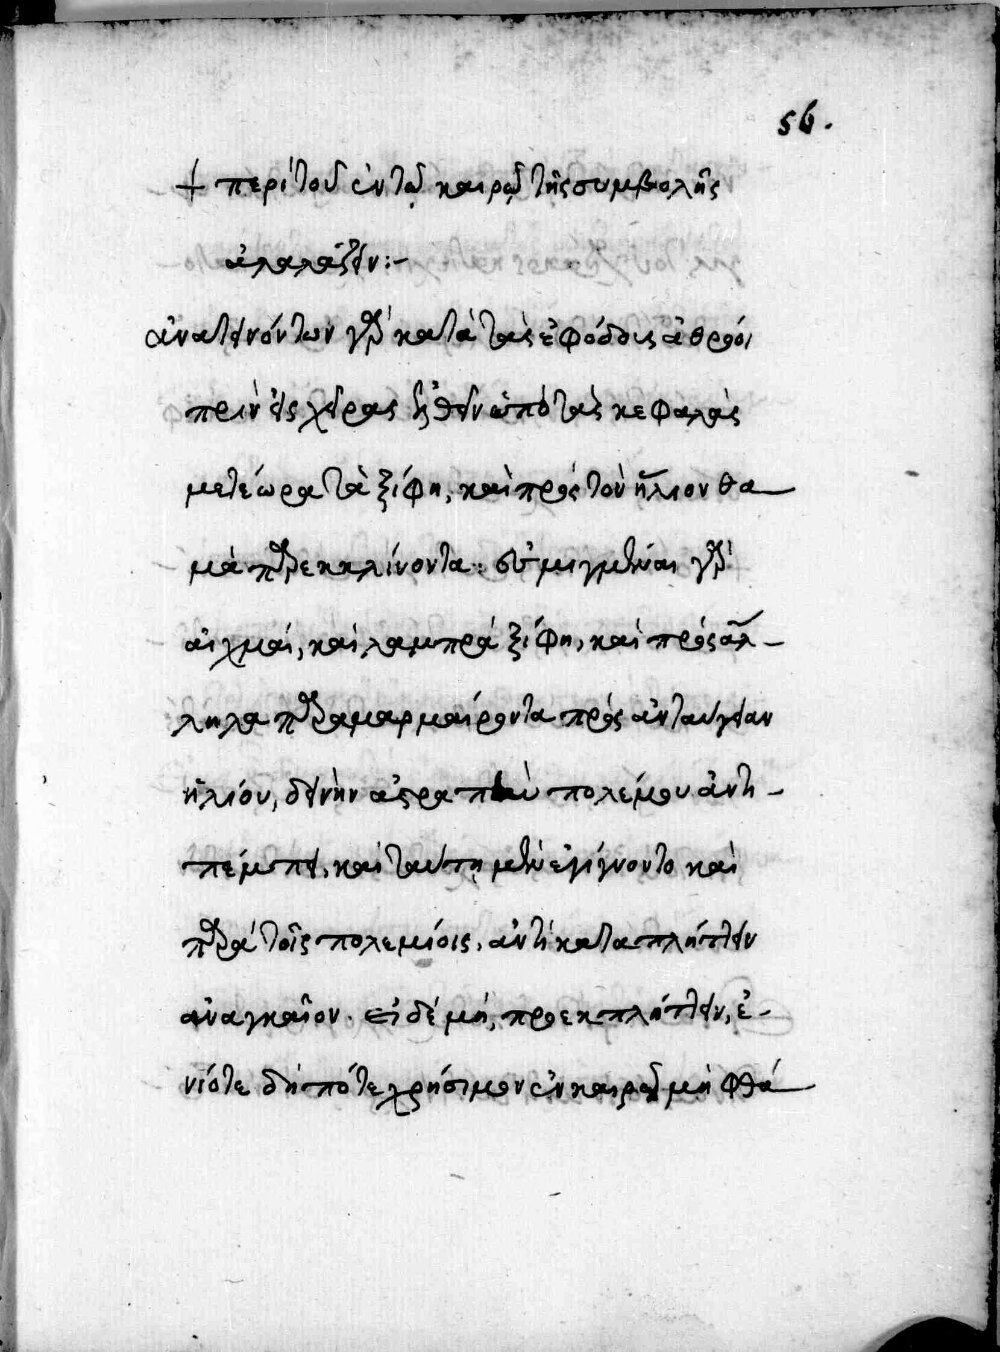 56.
+ περὶ τοῦ ἐν τῷ καιρῷ τῆς συμβολῆς
ἀλαλάζειν :-
ἀνατεινόντων γὰρ κατὰ τὰς ἐφόδους ἀθρόοι
πρὶν εἰς χεῖρας ἐλθεῖν ὑπὸ τὰς κεφαλὰς
μετέωρα τὰ ξίφη, καὶ πρὸς τὸν ἥλιον θα
μὰ παρεκκλίνοντα· γὰρ
αἰχμαὶ, καὶ λαμπρὰ ξίφη, καὶ πρὸς ἄλ-
ληλα παραμαρμαίροντα πρὸς ἀνταύγειαν
ἡλίου, δεινὴν πολέμου ἀντι-
πέμπει. καὶ ταύτῃ μὲν ἐγίγνοντο καὶ
παρὰ τοῖς πολεμίοις, ἀντικαταπλήττειν
ἀναγκαῖον. εἰ δὲ μή, προεκπλήττειν, ἐ-
νίοτε δήποτε χρήσιμον ἐν καιρῷ μὴ φθά